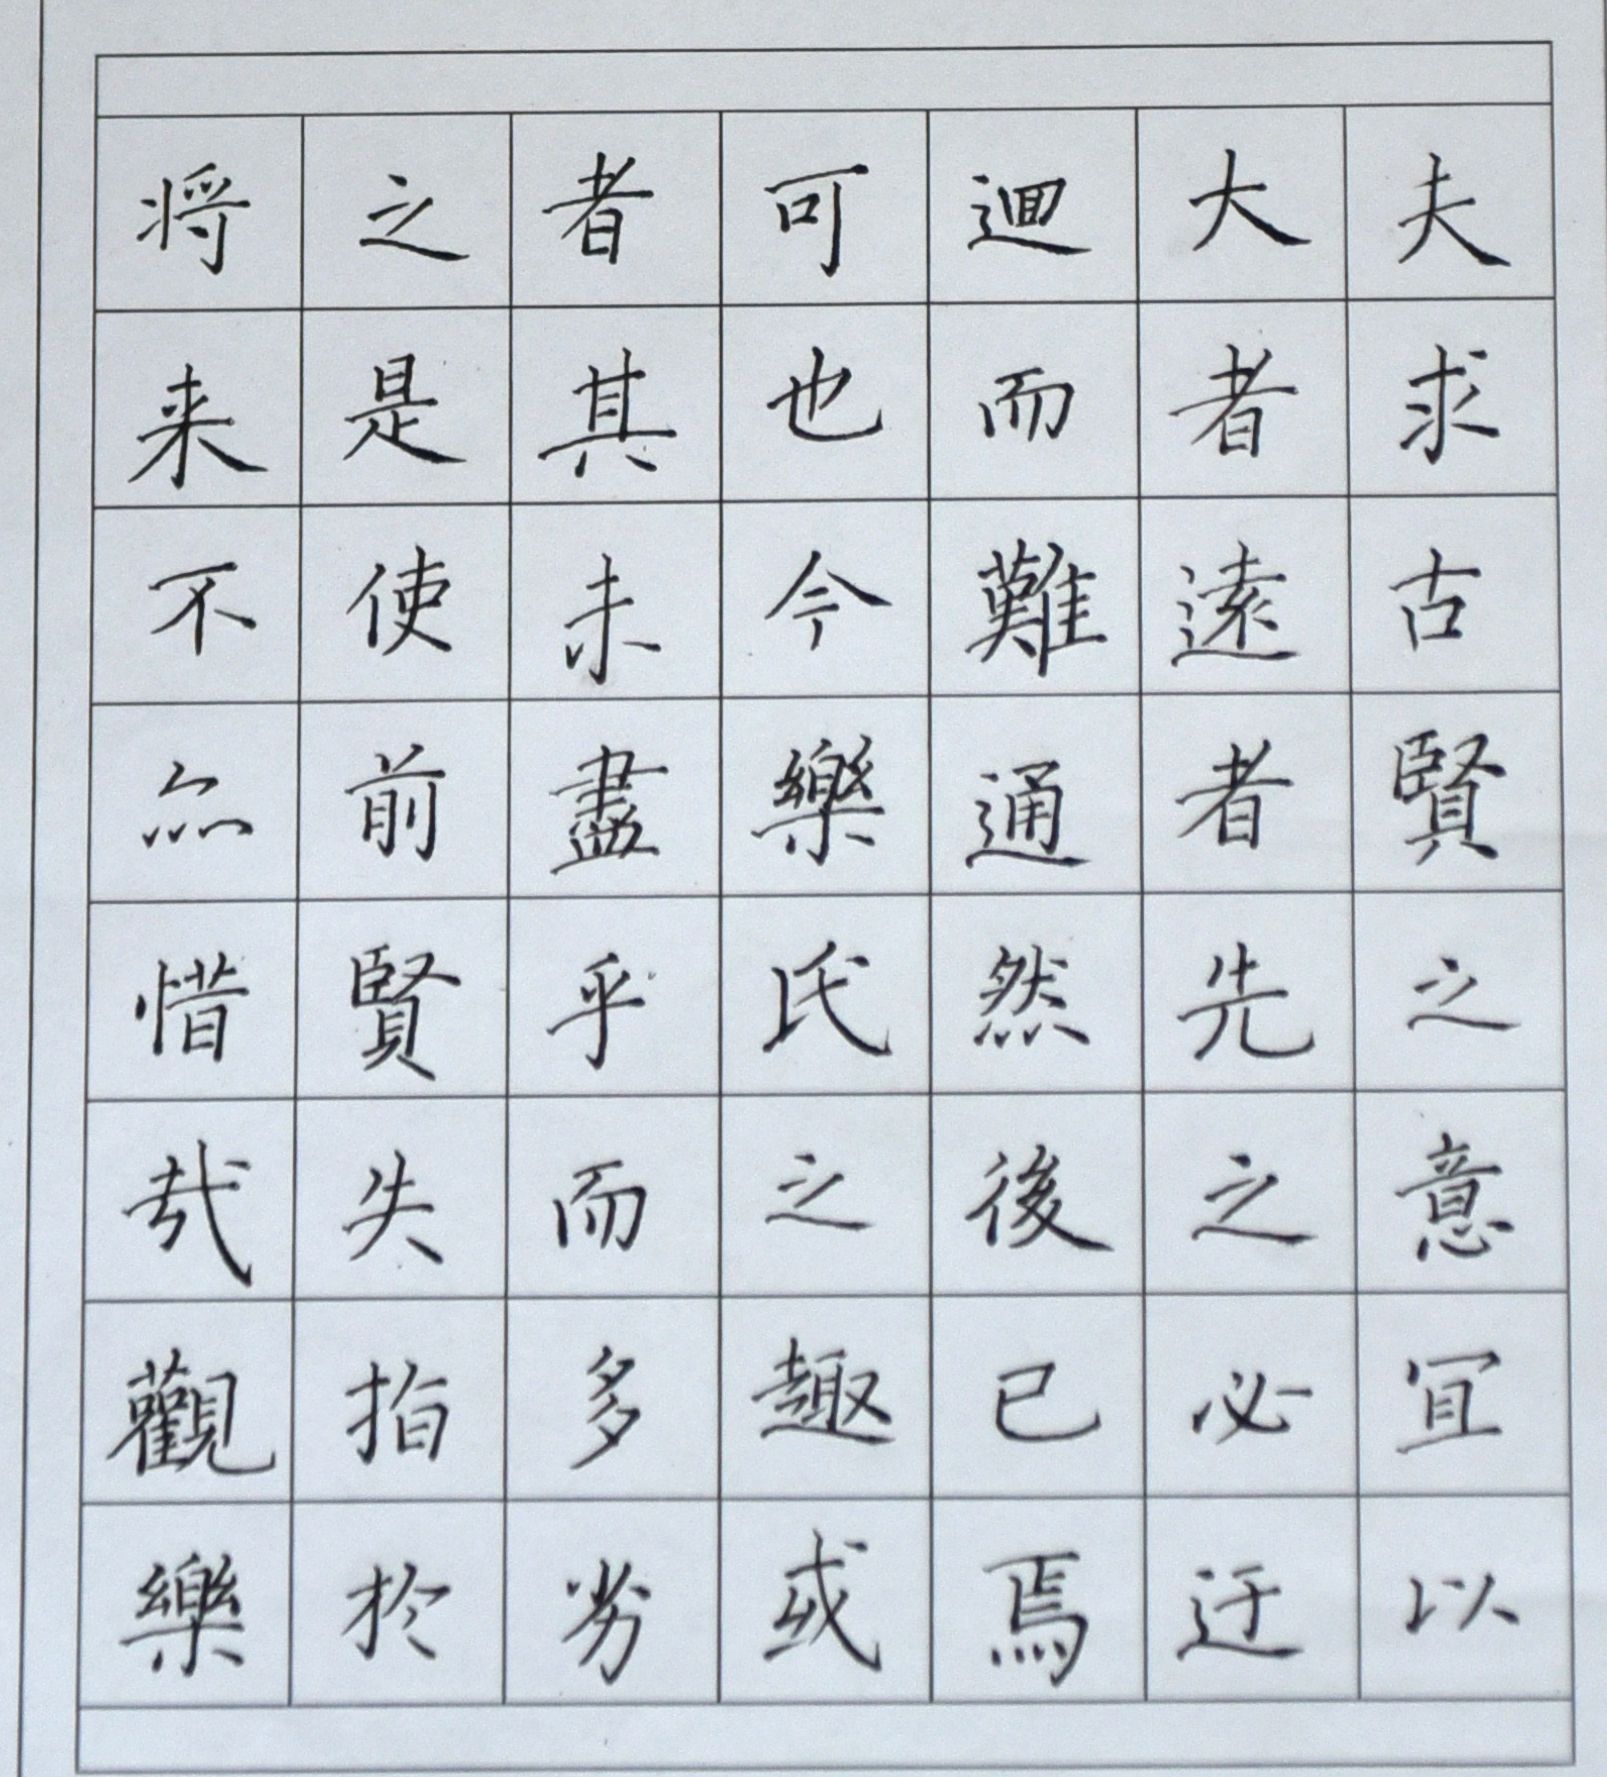 夫求古賢之意宜以
大者遠者先之必迂
迴而難通然後已焉
可也今樂氏之趣或
者其未盡乎而多劣
之是使前賢失指於
将来不亦惜哉觀樂